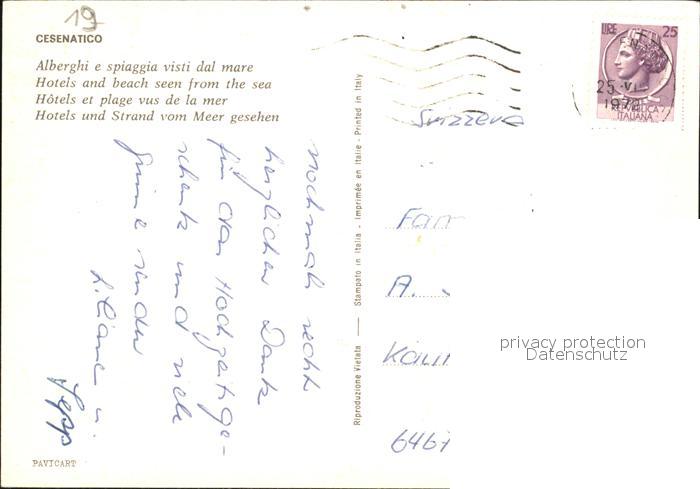 19
CESENATICO
Alberghi e spiaggia visti dal mare
Hotels and beach seen from the sea
Hôtels et plage vus de la mer
Hotels und Strand vom Meer gesehen
nochmals recht
herzlichen Dank
für das Hochzeitsge-
schenk und viele
Grüsse senden
Liliane u.
Sepp
PAVICART
Riproduzione Vietata — Stampato in Italia - Imprimée en Italie - Printed in Italy
LIRE 25
25-VI-
197
REPUBBLICA
ITALIANA
Svizzera
Fam
A.
6467
privacy protection
Datenschutz